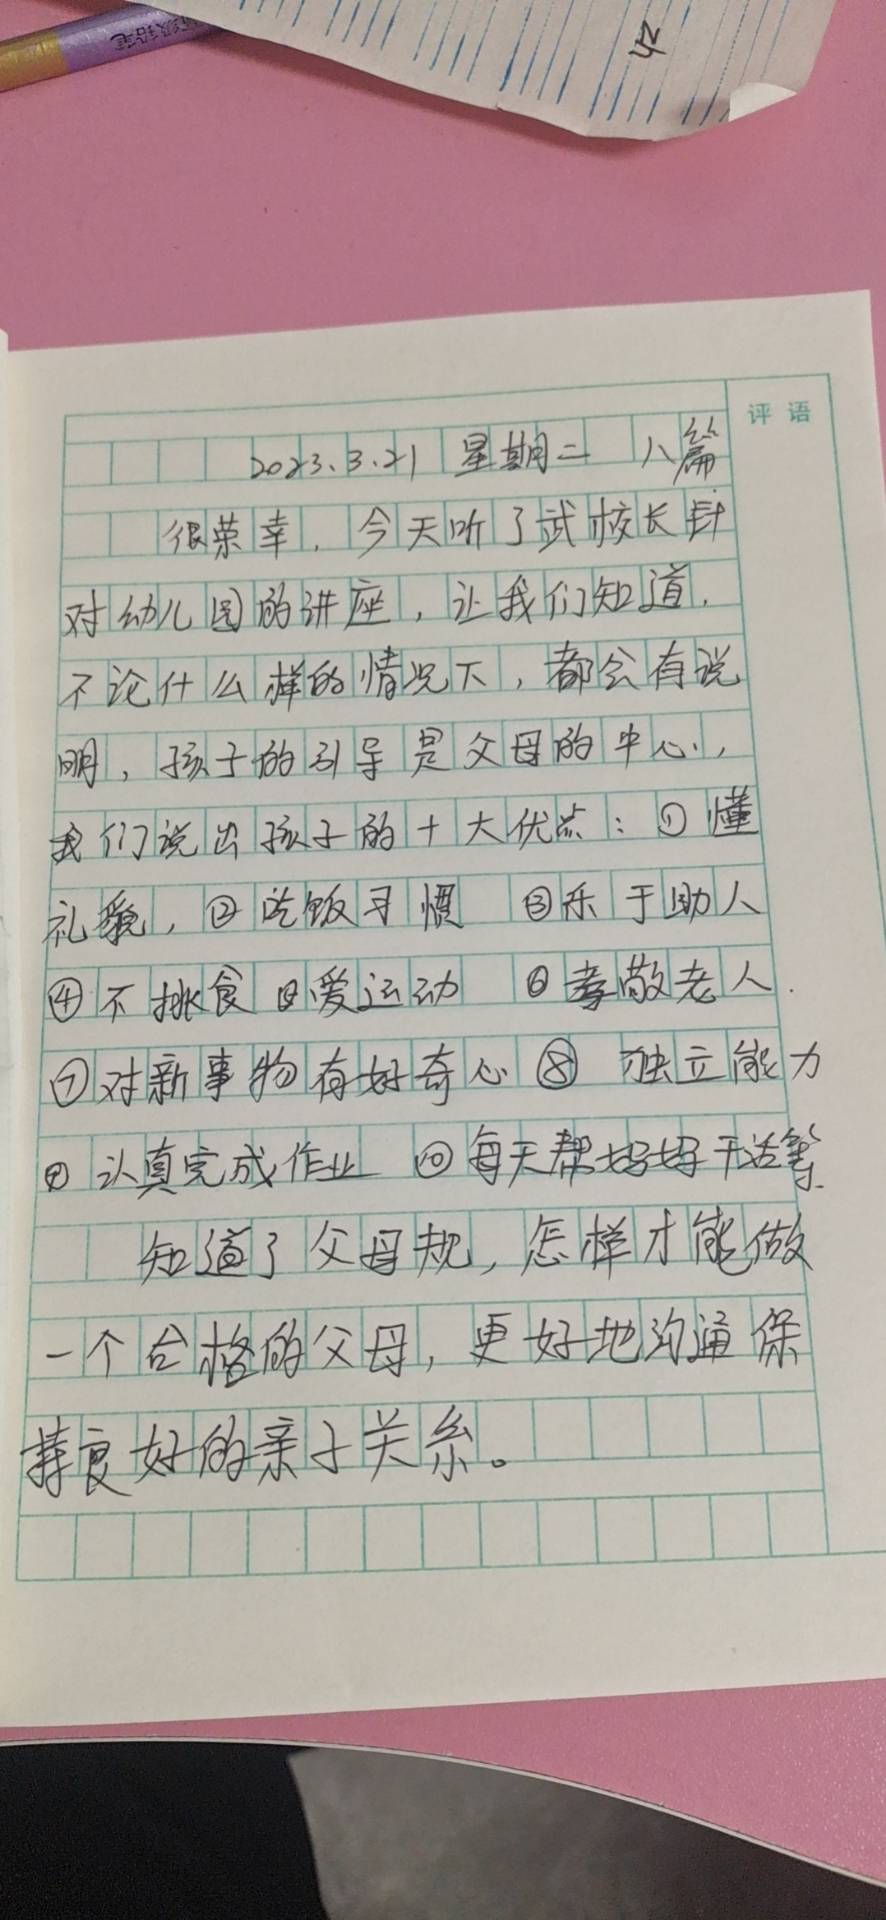 级铅笔
2023.3.21 星期二 八篇
评语
很荣幸，今天听了武校长针
对幼儿园的讲座，让我们知道，
不论什么样的情况下，都会有说
明，孩子的引导是父母的中心，
我们说出孩子的十大优点：①懂
礼貌，②吃饭习惯 ③乐于助人
④不挑食⑤爱运动 ⑥孝敬老人.
⑦对新事物有好奇心⑧ 独立能力
⑨认真完成作业 ⑩每天帮妈妈干活等.
知道了父母规，怎样才能做
一个合格的父母，更好地沟通保
持良好的亲子关系。